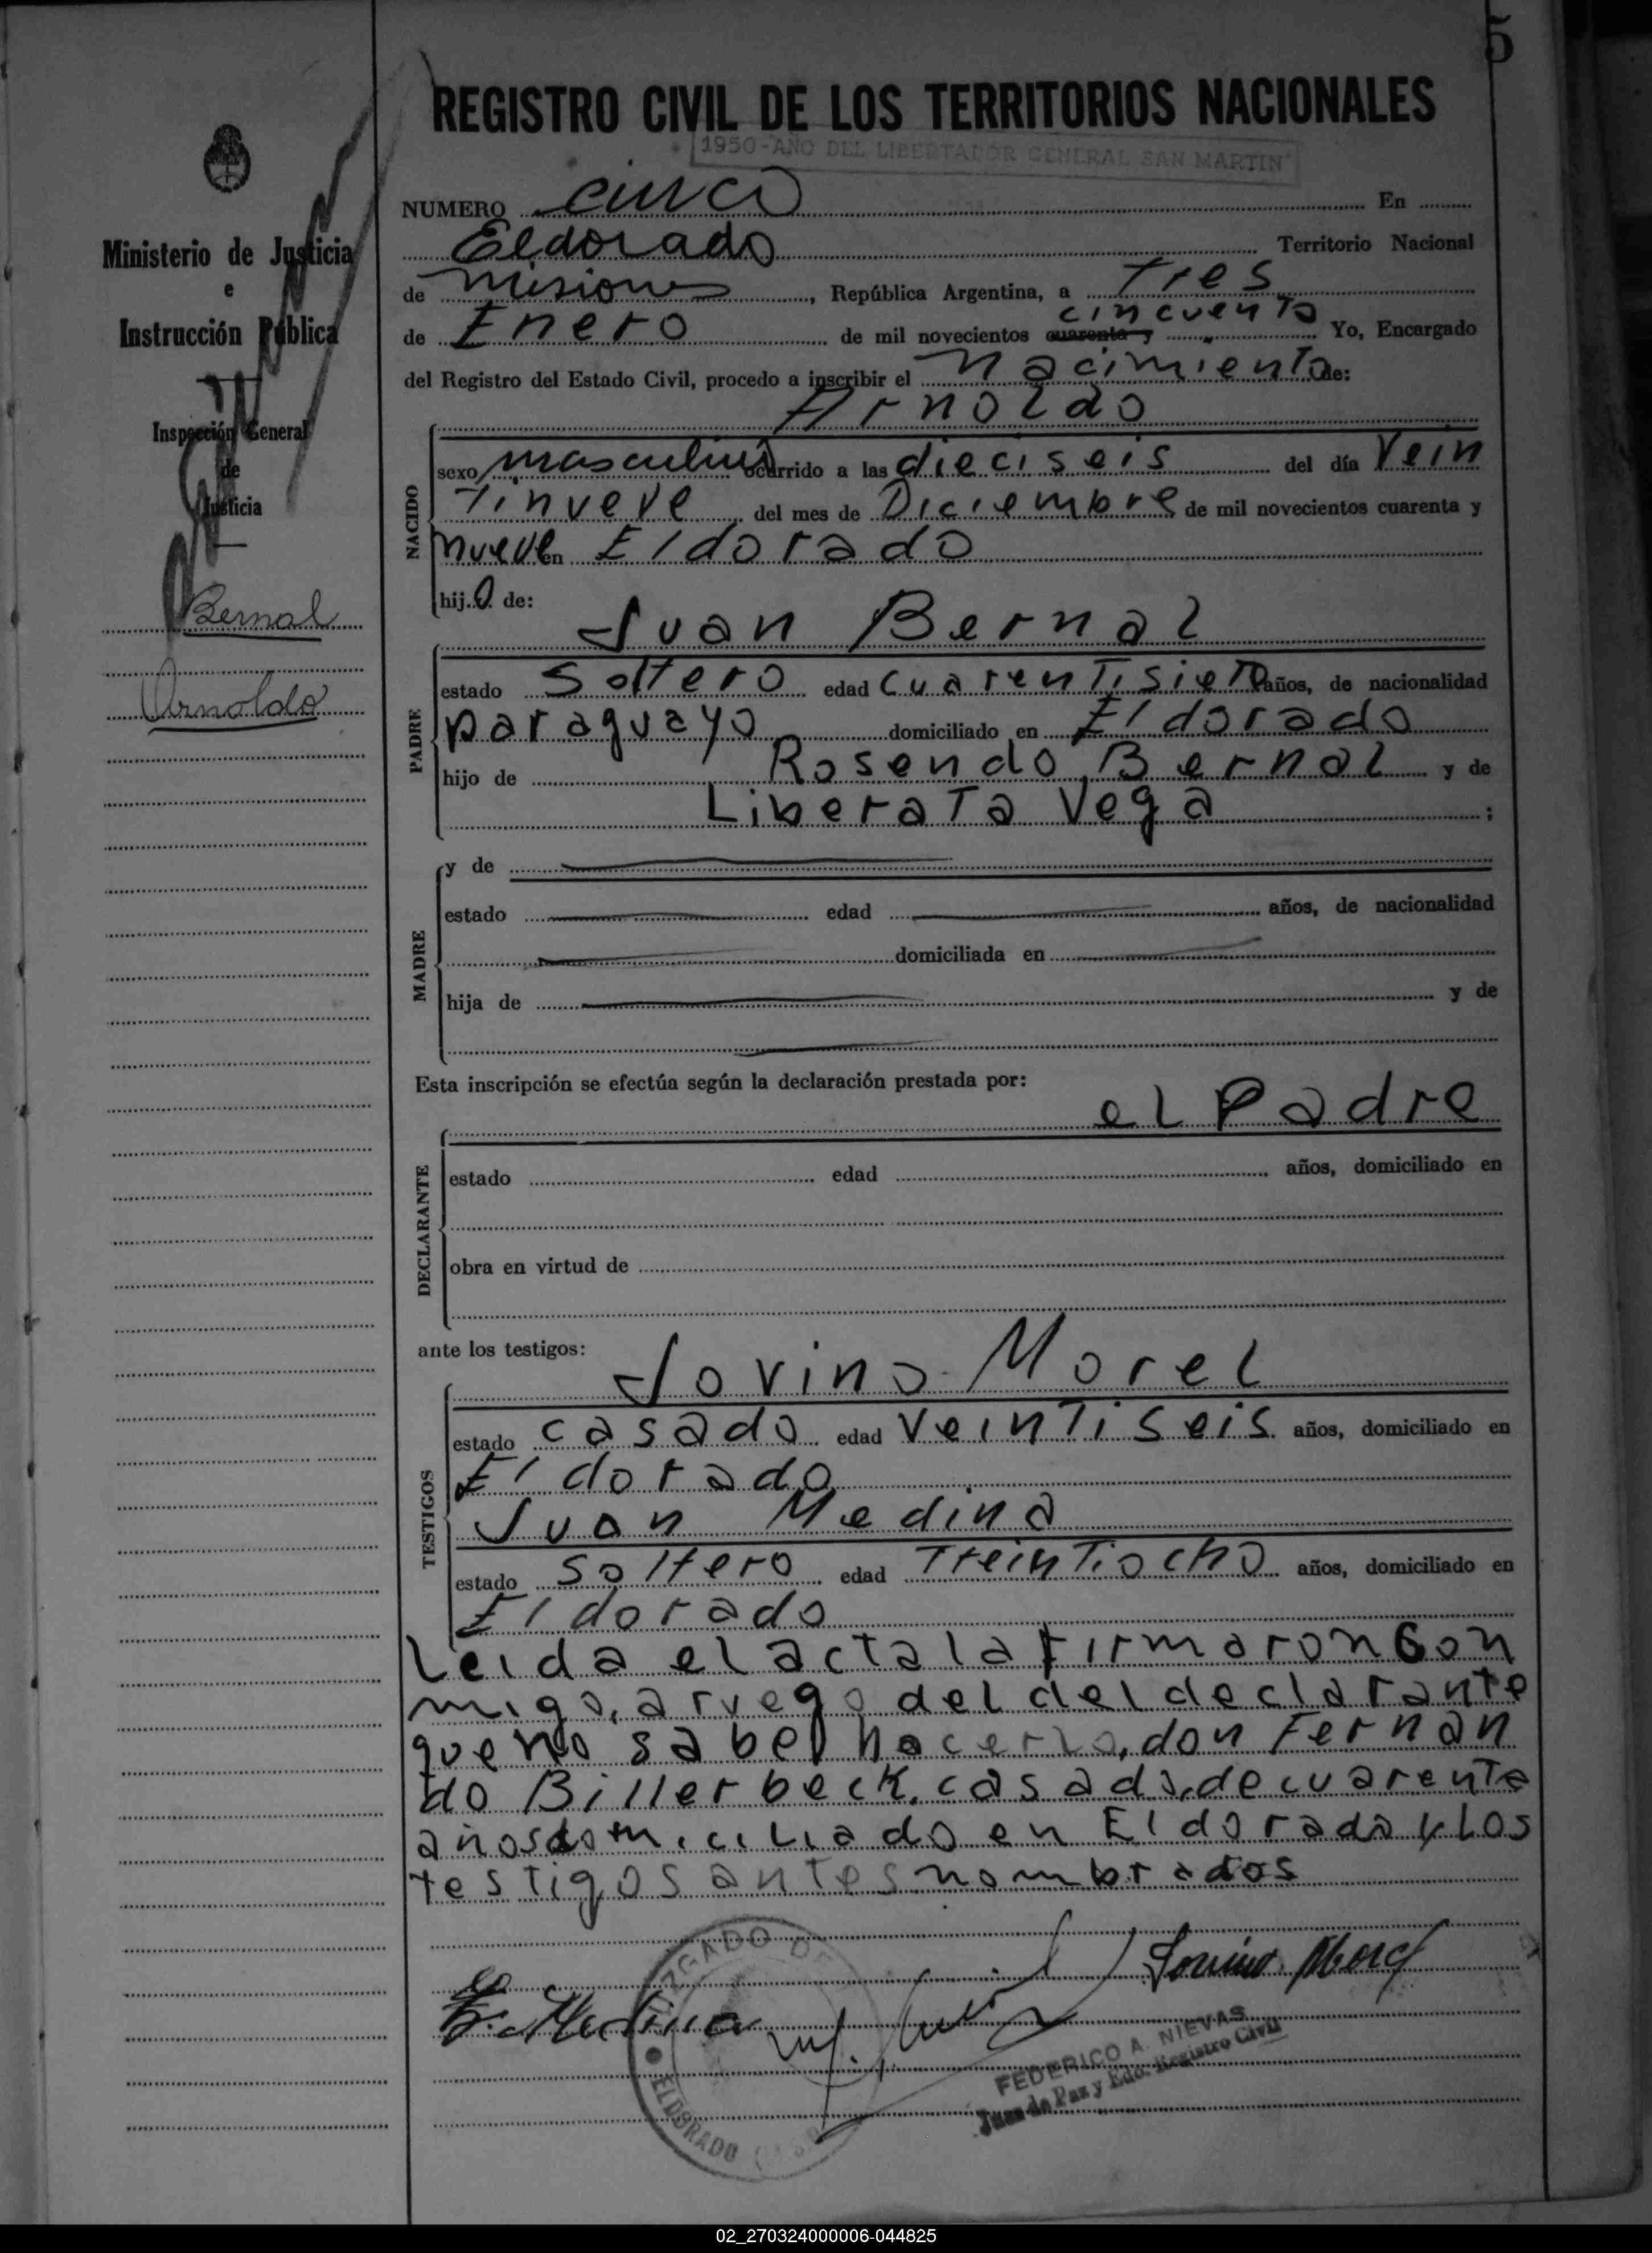 5
REGISTRO CIVIL DE LOS TERRITORIOS NACIONALES
1950-AÑO DEL LIBERTADOR GENERAL SAN MARTIN
Ministerio de Justicia
e
Instrucción Pública
Inspección General
de
Justicia
Bernal
Arnoldo
NUMERO cinco En
Eldorado Territorio Nacional
de Misiones, República Argentina, a Tres
cincuenta
de Enero de mil novecientos cuarenta y Yo, Encargado
del Registro del Estado Civil, procedo a inscribir el nacimiento de:
Arnoldo
NACIDO
sexo masculino ocurrido a las dieciseis del día Vein
Tinueve del mes de Diciembre de mil novecientos cuarenta y
nueve en Eldorado
hijo de:
Juan Bernal
PADRE
estado Soltero edad cuarentisiete años, de nacionalidad
paraguayo domiciliado en Eldorado
hijo de Rosendo Bernal y de
Liberata Vega ;
MADRE
y de
estado edad años, de nacionalidad
domiciliada en
hija de y de
Esta inscripción se efectúa según la declaración prestada por:
el Padre
DECLARANTE
estado edad años, domiciliado en
obra en virtud de
ante los testigos:
Jovino Morel
TESTIGOS
estado casado edad VeinTiseis años, domiciliado en
Eldorado
Juan Medina
estado Soltero edad TreinTiocho años, domiciliado en
Eldorado
Leida el acta la firmaron con
migo, a ruego del del declarante
que no sabe hacerlo, don Fernan
do Billerbeck, casado, de cuarenta
años domiciliado en Eldorado y los
testigos antes nombrados
Medina
Jovino Morel
JUZGADO DE
ELDORADO
FEDERICO A. NIEVAS
Juez de Paz y Edo. Registro Civil
02_270324000006-044825